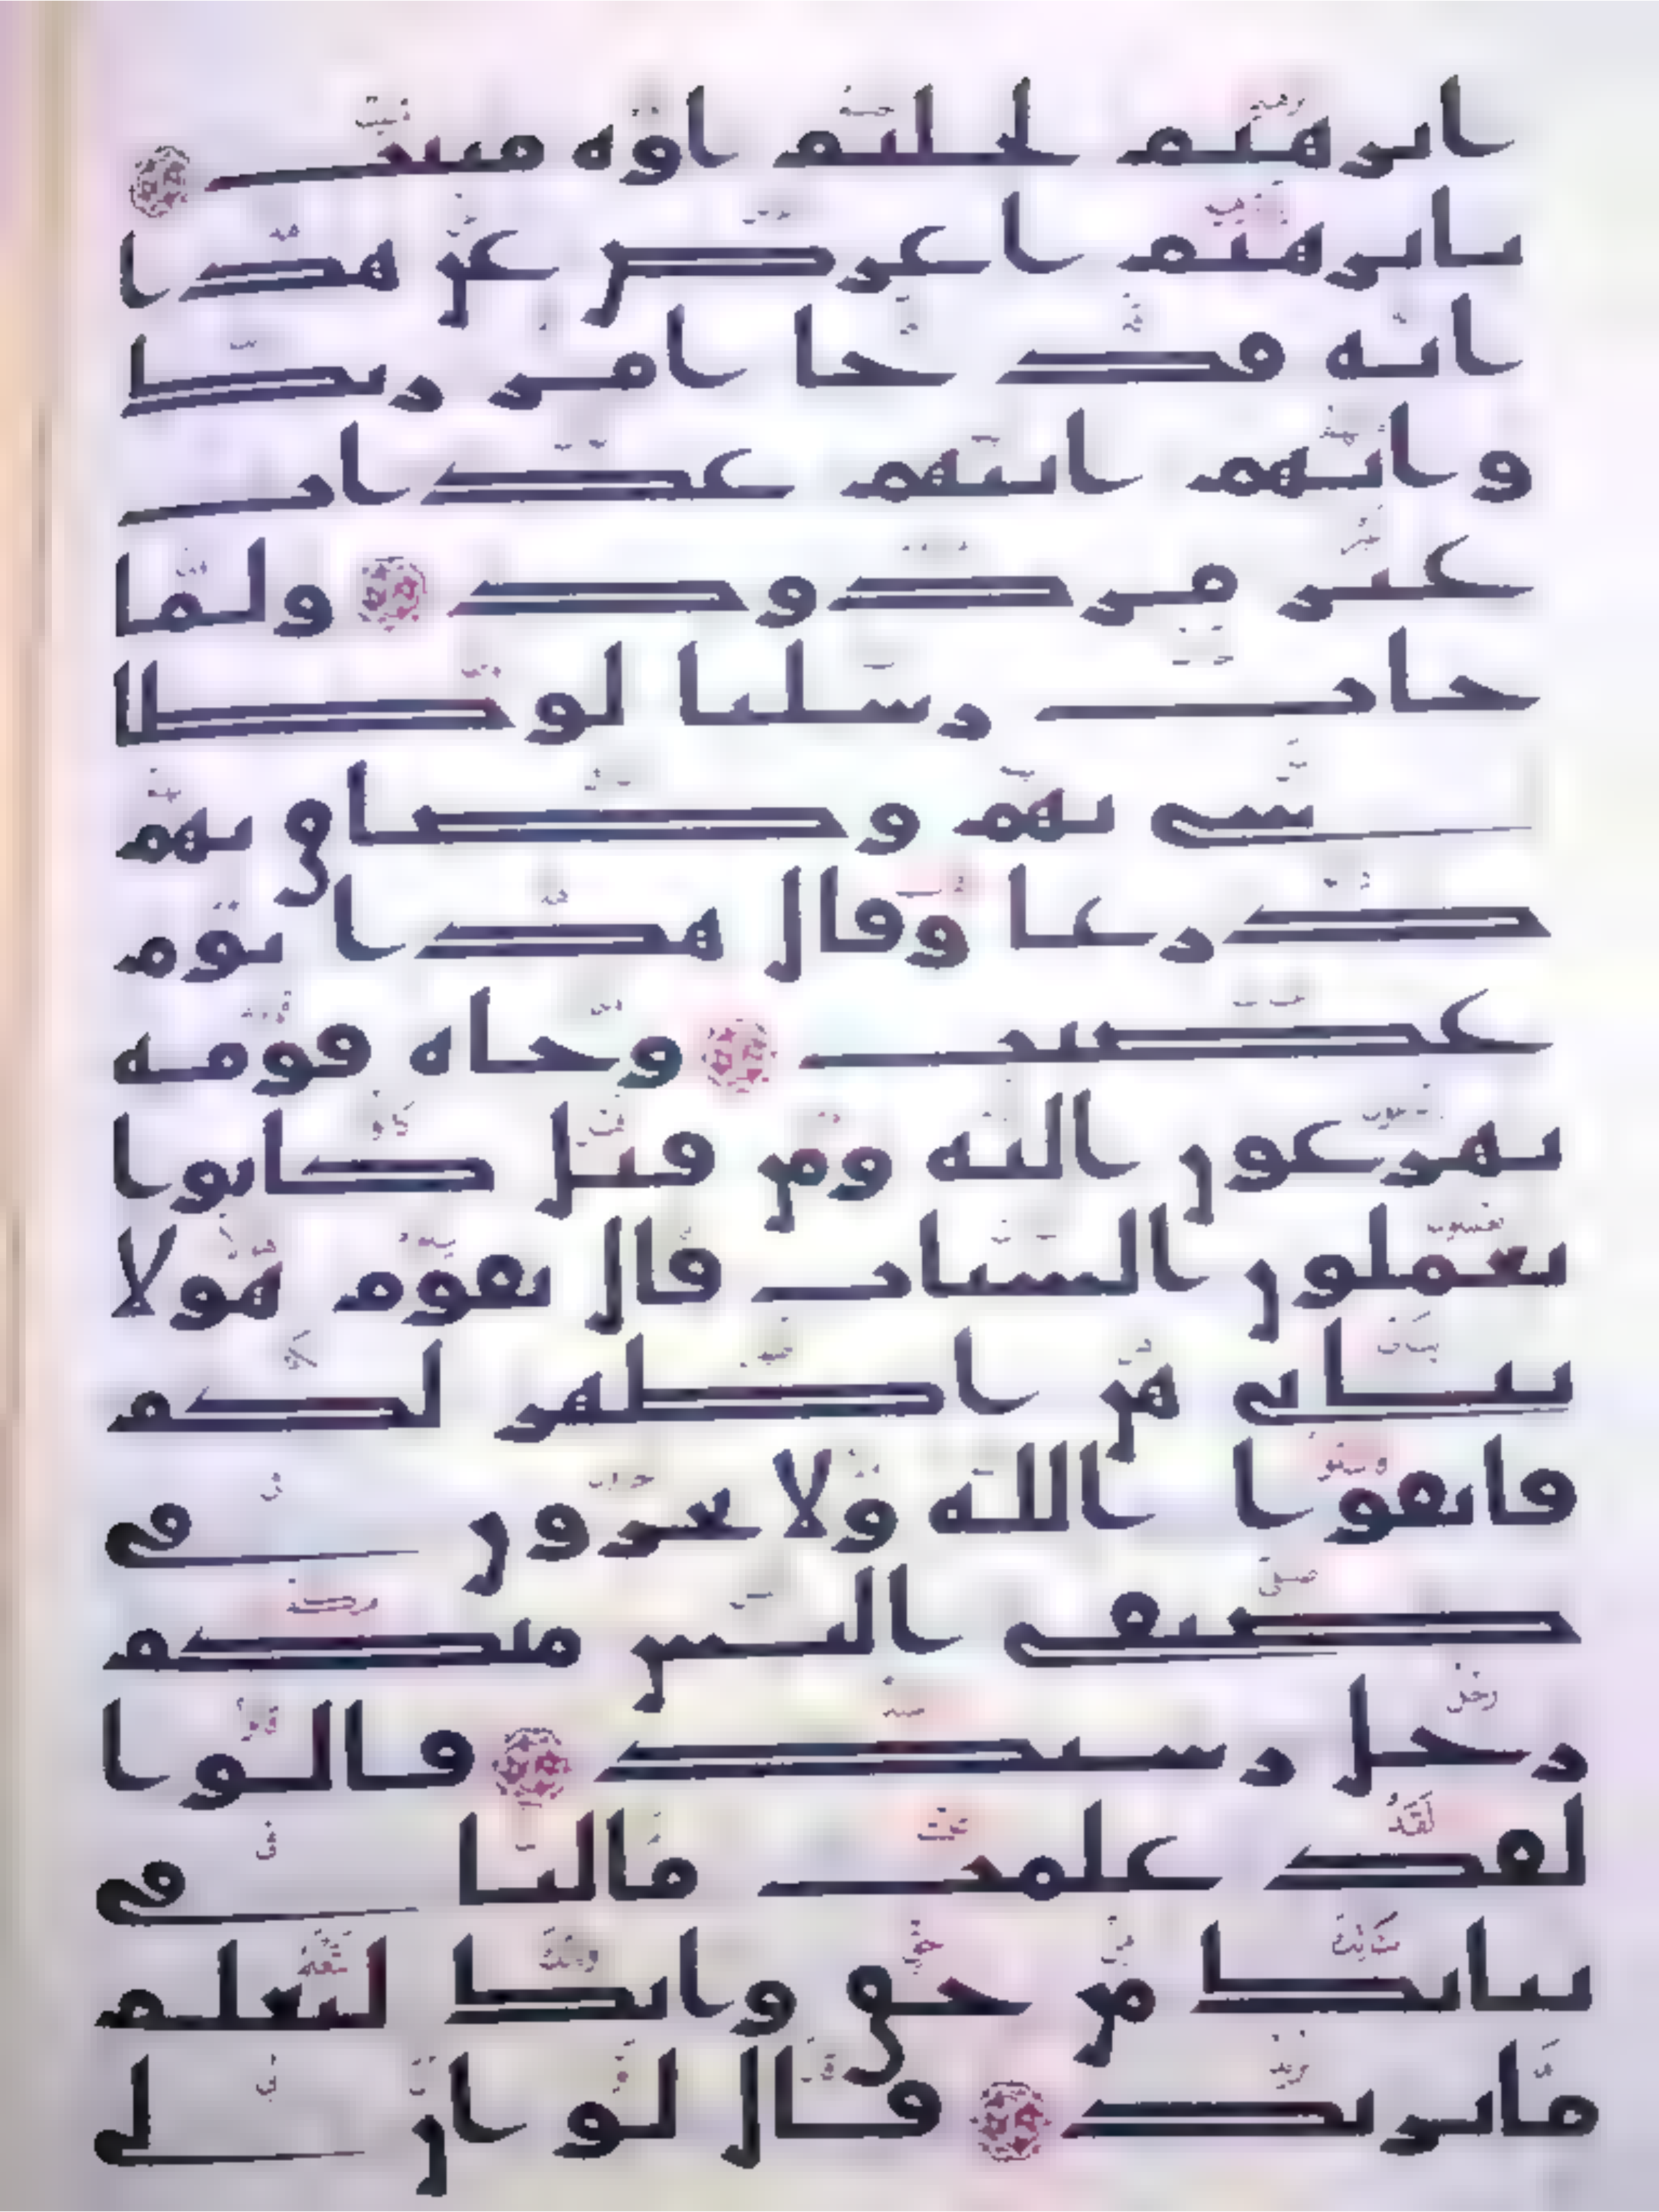 ابرهيم لحليم اوه منيب
يابرهيم اعرض عن هذا
انه قد جا امر ربك
وانهم اتيهم عذاب
غير مردود ولما
جات رسلنا لوطا
سي بهم وضاق بهم
ذرعا وقال هذا يوم
عصيب وجاه قومه
يهرعون اليه ومن قبل كانوا
يعملون السيات قال يقوم هولا
بناتي هن اطهر لكم
فاتقوا الله ولا تخزون في
ضيفي اليس منكم
رجل رشيد قالوا
لقد علمت ما لنا في
بناتك من حق وانك لتعلم
ما نريد قال لو ان لي